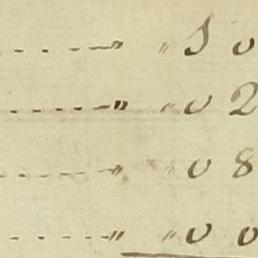 .....„ „ 10
.....„ „ 02
.....„ „ 08
.....„ „ 00